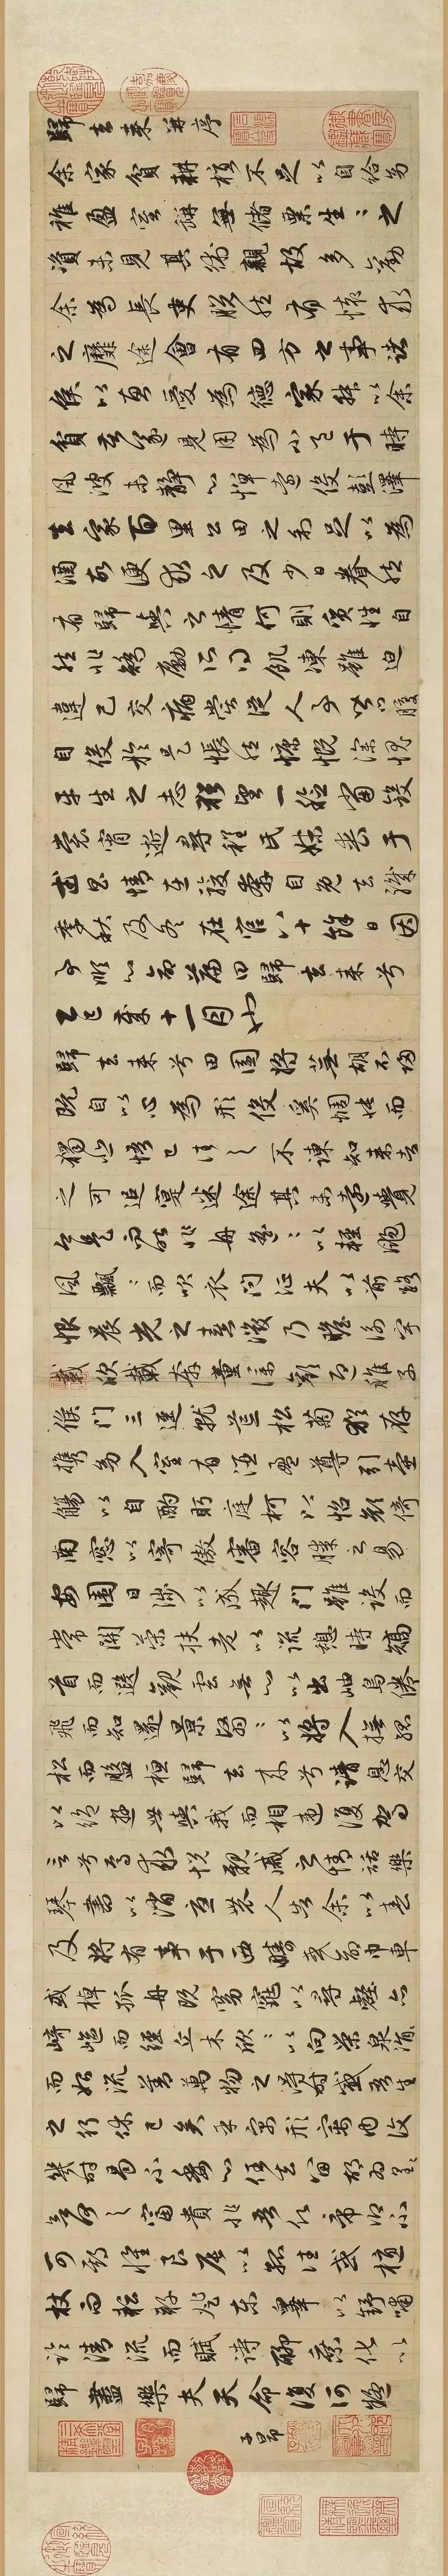 歸去來并序
余家貧耕植不足以自給幼
稚盈室缾無儲粟生〻之
資未見其術親故多勸
余為長吏脫然有懷求
之靡途會有四方之事諸
侯以惠愛為德家叔以余
貧苦遂見用為小邑于時
風波未靜心憚遠役彭澤
去家百里公田之利足以為
酒故便求之及少日眷然
有歸與之情何則質性自
然非矯勵所得飢凍雖迫
違己交病嘗從人事皆口腹
自役於是悵然慷慨深愧
平生之志猶望一稔當斂
裳宵逝尋程氏妹喪于
武昌情在駿奔自免去職
季秋及冬在官八十餘日因
事順心命篇曰歸去來兮
乙巳歲十一月也
歸去來兮田園將蕪胡不歸
既自以心為形役奚惆悵而
獨悲悟已往之不諫知來者
之可追寔迷途其未遠覺
今是而昨非舟遙〻以輕颺
風飄〻而吹衣問征夫以前路
恨晨光之熹微乃瞻衡宇
載欣載奔童僕歡迎稚子
候門三逕就荒松菊猶存
攜幼入室有酒盈尊引壺
觴以自酌眄庭柯以怡顏倚
南窗以寄傲審容膝之易
安園日涉以成趣門雖設而
常關策扶老以流憩時矯
首而遐觀雲無心以出岫鳥倦
飛而知還景翳〻以將入撫孤
松而盤桓歸去來兮請息交
以絕遊世與我而相遺復駕
言兮焉求悅親戚之情話樂
琴書以消憂農人告余以春
及將有事于西疇或命巾車
或棹孤舟既窈窕以尋壑亦
崎嶇而經丘木欣〻以向榮泉涓〻
而始流羨萬物之得時感吾生
之行休已矣乎寓形宇內復
幾時曷不委心任去留胡為遑〻
兮何之富貴非吾願帝鄉不
可期懷良辰以孤往或植
杖而耘耔登東皋以舒嘯
臨清流而賦詩聊乘化以
歸盡樂夫天命復何疑
子昂